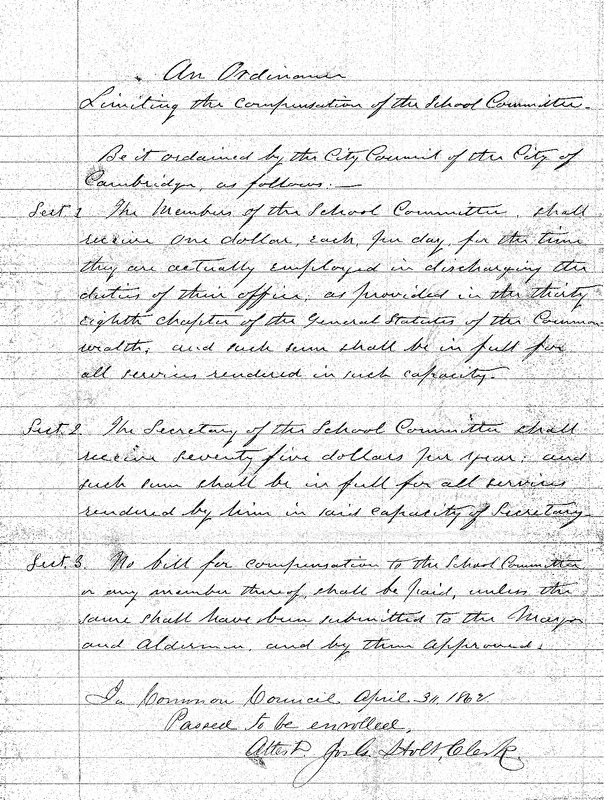 An Ordinance
Limiting the compensation of the School Committee.
Be it ordained by the City Council of the City of
Cambridge, as follows:—
Sect. 1 The Members of the School Committee, shall
receive one dollar, each, per day, for the time
they are actually employed in discharging the
duties of their office, as provided in the thirty
eighth chapter of the General Statutes of the Common-
wealth; and such sum shall be in full for
all services rendered in such capacity.
Sect. 2. The Secretary of the School Committee shall
receive seventy five dollars per year; and
such sum shall be in full for all services
rendered by him in said capacity of Secretary.
Sect. 3. No bill for compensation to the School Committee
or any member thereof, shall be paid, unless the
same shall have been submitted to the Mayor
and Aldermen, and by them approved.
In Common Council April 1862
Passed to be enrolled,
Attest. Holt, Clerk.